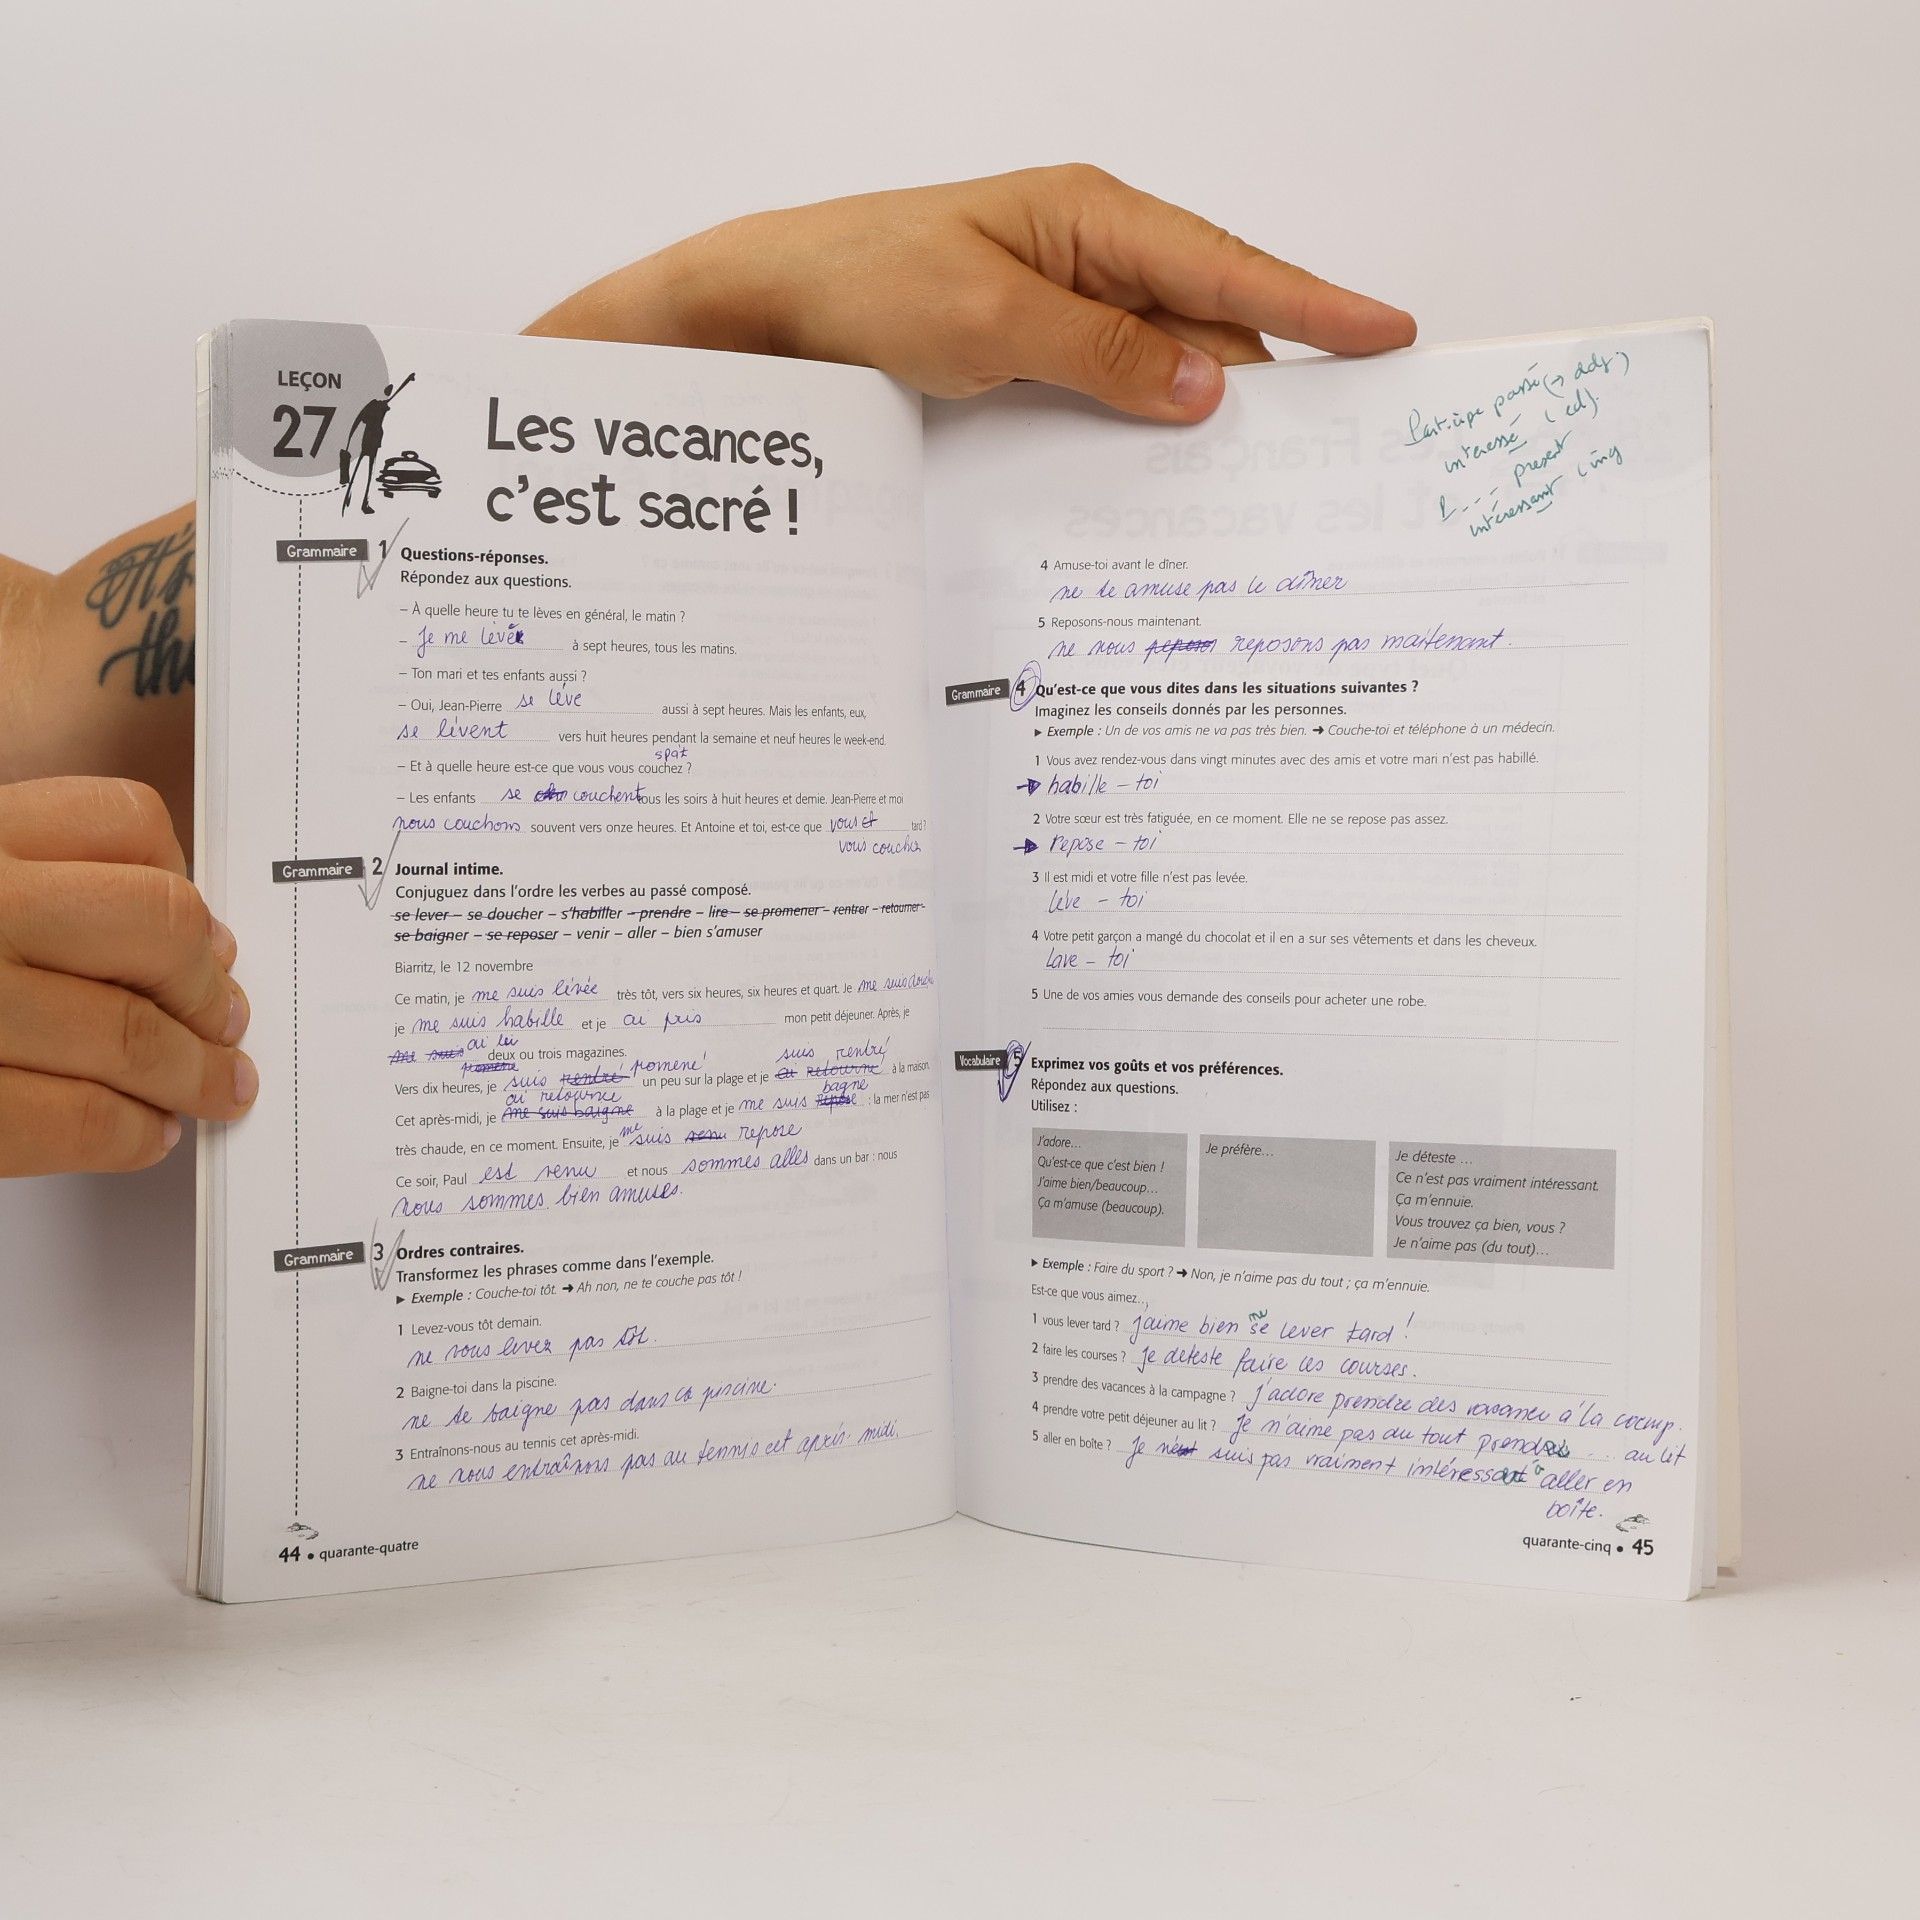 It's
the
LEÇON
27
Les vacances,
c'est sacré !
Grammaire 1 Questions-réponses.
Répondez aux questions.
– À quelle heure tu te lèves en général, le matin ?
– Je me lève à sept heures, tous les matins.
– Ton mari et tes enfants aussi ?
– Oui, Jean-Pierre se lève aussi à sept heures. Mais les enfants, eux,
se lèvent vers huit heures pendant la semaine et neuf heures le week-end.
spät
– Et à quelle heure est-ce que vous vous couchez ?
– Les enfants se couchent tous les soirs à huit heures et demie. Jean-Pierre et moi
nous couchons souvent vers onze heures. Et Antoine et toi, est-ce que vous et tard ?
vous couchez
Grammaire 2 Journal intime.
Conjuguez dans l'ordre les verbes au passé composé.
se lever – se doucher – s'habiller – prendre – lire – se promener – rentrer – retourner –
se baigner – se reposer – venir – aller – bien s'amuser
Biarritz, le 12 novembre
Ce matin, je me suis levée très tôt, vers six heures, six heures et quart. Je me suis
je me suis habille et je ai pris mon petit déjeuner. Après, je
me suis ai lu deux ou trois magazines.
promené promené suis rentré
Vers dix heures, je suis rentré un peu sur la plage et je ai retourné à la maison.
ai retourné bagne
Cet après-midi, je me suis baigne à la plage et je me suis repose : la mer n'est pas
très chaude, en ce moment. Ensuite, je me suis venu repose
Ce soir, Paul est venu et nous sommes alles dans un bar : nous
nous sommes bien amuses.
Grammaire 3 Ordres contraires.
Transformez les phrases comme dans l'exemple.
► Exemple : Couche-toi tôt. ➜ Ah non, ne te couche pas tôt !
1 Levez-vous tôt demain.
ne vous levez pas tôt.
2 Baigne-toi dans la piscine.
ne te baigne pas dans la piscine.
3 Entraînons-nous au tennis cet après-midi.
ne nous entraînons pas au tennis cet après-midi.
44 • quarante-quatre
Participe passé (→ adj.)
interessé (ed).
P--- present
intéressant (ing
4 Amuse-toi avant le dîner.
ne te amuse pas le dîner
5 Reposons-nous maintenant.
ne nous reposons pas maitenant.
Grammaire 4 Qu'est-ce que vous dites dans les situations suivantes ?
Imaginez les conseils donnés par les personnes.
► Exemple : Un de vos amis ne va pas très bien. ➜ Couche-toi et téléphone à un médecin.
1 Vous avez rendez-vous dans vingt minutes avec des amis et votre mari n'est pas habillé.
habille - toi
2 Votre sœur est très fatiguée, en ce moment. Elle ne se repose pas assez.
Repose - toi
3 Il est midi et votre fille n'est pas levée.
leve - toi
4 Votre petit garçon a mangé du chocolat et il en a sur ses vêtements et dans les cheveux.
Lave - toi
5 Une de vos amies vous demande des conseils pour acheter une robe.
Vocabulaire 5 Exprimez vos goûts et vos préférences.
Répondez aux questions.
Utilisez :
J'adore…
Qu'est-ce que c'est bien !
J'aime bien/beaucoup…
Ça m'amuse (beaucoup).
Je préfère…
Je déteste …
Ce n'est pas vraiment intéressant.
Ça m'ennuie.
Vous trouvez ça bien, vous ?
Je n'aime pas (du tout)…
► Exemple : Faire du sport ? ➜ Non, je n'aime pas du tout ; ça m'ennuie.
Est-ce que vous aimez…
me
1 vous lever tard ? j'aime bien se lever tard !
2 faire les courses ? je deteste faire les courses.
3 prendre des vacances à la campagne ? j'adore prendre des vacances à la camp.
4 prendre votre petit déjeuner au lit ? Je n'aime pas du tout prendre … au lit
5 aller en boîte ? Je suis pas vraiment intéressant à aller en
boîte.
quarante-cinq • 45